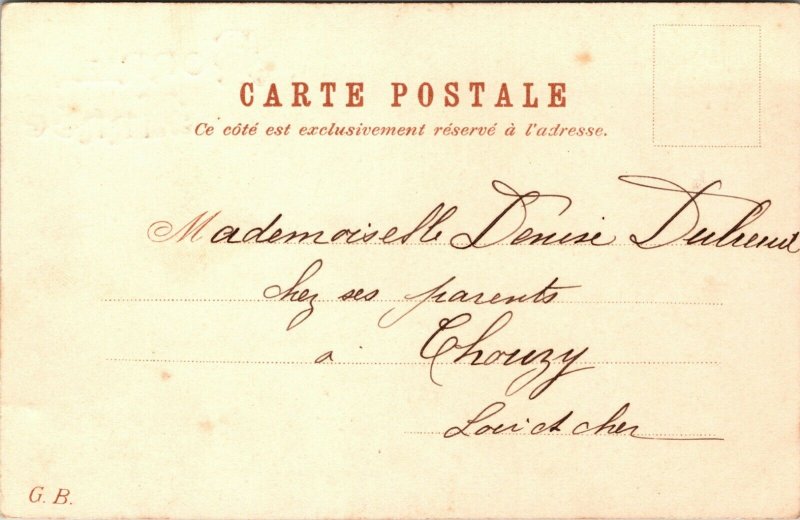 CARTE POSTALE
Ce côté est exclusivement réservé à l'adresse.
Mademoiselle Denise
chez ses parents
a Chouzy
Loir et cher
G. B.